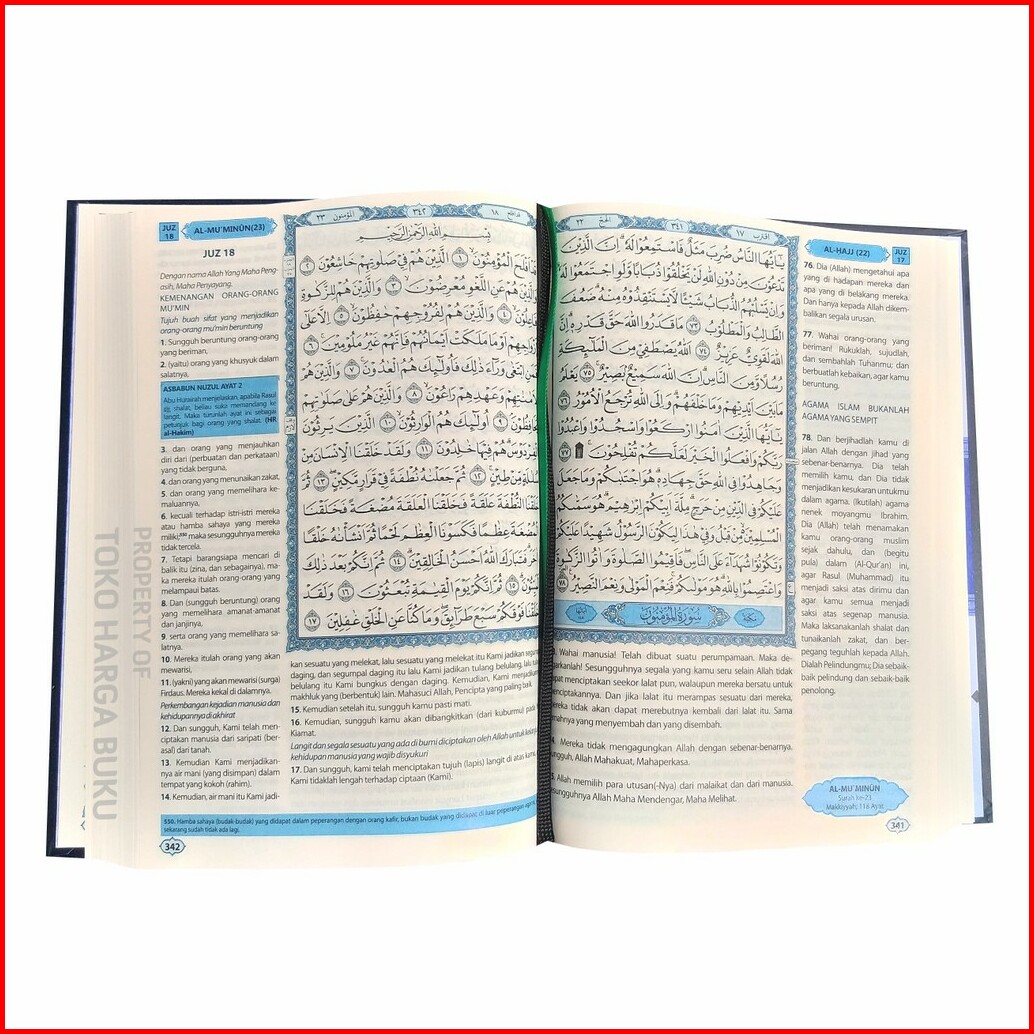 اقترب ١٧
٣٤١
الحج ٢٢
يٰٓاَيُّهَا النَّاسُ ضُرِبَ مَثَلٌ فَاسْتَمِعُوْا لَهٗ ۗاِنَّ الَّذِيْنَ
تَدْعُوْنَ مِنْ دُوْنِ اللّٰهِ لَنْ يَّخْلُقُوْا ذُبَابًا وَّلَوِ اجْتَمَعُوْا لَهٗ
وَاِنْ يَّسْلُبْهُمُ الذُّبَابُ شَيْـًٔا لَّا يَسْتَنْقِذُوْهُ مِنْهُۗ ضَعُفَ
الطَّالِبُ وَالْمَطْلُوْبُ ٧٣ مَا قَدَرُوا اللّٰهَ حَقَّ قَدْرِهٖۗ اِنَّ
اللّٰهَ لَقَوِيٌّ عَزِيْزٌ ٧٤ اَللّٰهُ يَصْطَفِيْ مِنَ الْمَلٰۤىِٕكَةِ
رُسُلًا وَّمِنَ النَّاسِۗ اِنَّ اللّٰهَ سَمِيْعٌۢ بَصِيْرٌ ٧٥ يَعْلَمُ
مَا بَيْنَ اَيْدِيْهِمْ وَمَا خَلْفَهُمْۗ وَاِلَى اللّٰهِ تُرْجَعُ الْاُمُوْرُ ٧٦
يٰٓاَيُّهَا الَّذِيْنَ اٰمَنُوا ارْكَعُوْا وَاسْجُدُوْا وَاعْبُدُوْا
رَبَّكُمْ وَافْعَلُوا الْخَيْرَ لَعَلَّكُمْ تُفْلِحُوْنَ ٧٧
وَجَاهِدُوْا فِى اللّٰهِ حَقَّ جِهَادِهٖۗ هُوَ اجْتَبٰىكُمْ وَمَا جَعَلَ
عَلَيْكُمْ فِى الدِّيْنِ مِنْ حَرَجٍۗ مِلَّةَ اَبِيْكُمْ اِبْرٰهِيْمَۗ هُوَ سَمّٰىكُمُ
الْمُسْلِمِيْنَ ەۙ مِنْ قَبْلُ وَفِيْ هٰذَا لِيَكُوْنَ الرَّسُوْلُ شَهِيْدًا عَلَيْكُمْ
وَتَكُوْنُوْا شُهَدَاۤءَ عَلَى النَّاسِۖ فَاَقِيْمُوا الصَّلٰوةَ وَاٰتُوا الزَّكٰوةَ
وَاعْتَصِمُوْا بِاللّٰهِۗ هُوَ مَوْلٰىكُمْۚ فَنِعْمَ الْمَوْلٰى وَنِعْمَ النَّصِيْرُ ٧٨
مكية
سُوْرَةُ الْمُؤْمِنُوْنَ
Wahai manusia! Telah dibuat suatu perumpamaan. Maka de-
garkanlah! Sesungguhnya segala yang kamu seru selain Allah tidak
pat menciptakan seekor lalat pun, walaupun mereka bersatu untuk
enciptakannya. Dan jika lalat itu merampas sesuatu dari mereka,
ereka tidak akan dapat merebutnya kembali dari lalat itu. Sama
mahnya yang menyembah dan yang disembah.
Mereka tidak mengagungkan Allah dengan sebenar-benarnya.
ungguh, Allah Mahakuat, Mahaperkasa.
Allah memilih para utusan(-Nya) dari malaikat dan dari manusia.
sungguhnya Allah Maha Mendengar, Maha Melihat.
AL-HAJJ (22)
JUZ
17
76. Dia (Allah) mengetahui apa
yang di hadapan mereka dan
apa yang di belakang mereka.
Dan hanya kepada Allah dikem-
balikan segala urusan.
77. Wahai orang-orang yang
beriman! Rukuklah, sujudlah,
dan sembahlah Tuhanmu; dan
berbuatlah kebaikan, agar kamu
beruntung.
AGAMA ISLAM BUKANLAH
AGAMA YANG SEMPIT
78. Dan berjihadlah kamu di
jalan Allah dengan jihad yang
sebenar-benarnya. Dia telah
memilih kamu, dan Dia tidak
menjadikan kesukaran untukmu
dalam agama. (Ikutilah) agama
nenek moyangmu Ibrahim.
Dia (Allah) telah menamakan
kamu orang-orang muslim
sejak dahulu, dan (begitu
pula) dalam (Al-Qur'an) ini,
agar Rasul (Muhammad) itu
menjadi saksi atas dirimu dan
agar kamu semua menjadi
saksi atas segenap manusia.
Maka laksanakanlah shalat dan
tunaikanlah zakat, dan ber-
pegang teguhlah kepada Allah.
Dialah Pelindungmu; Dia sebaik-
baik pelindung dan sebaik-baik
penolong.
AL-MU´MINŪN
Surah ke-23
Makkiyyah; 118 Ayat
341
JUZ
18
AL-MU´MINŪN(23)
JUZ 18
Dengan nama Allah Yang Maha Peng-
asih, Maha Penyayang.
KEMENANGAN ORANG-ORANG
MU'MIN
Tujuh buah sifat yang menjadikan
orang-orang mu'min beruntung
1. Sungguh beruntung orang-orang
yang beriman.
2. (yaitu) orang yang khusyuk dalam
salatnya,
ASBABUN NUZUL AYAT 2
Abu Hurairah menjelaskan, apabila Rasul
ﷺ shalat, beliau suka memandang ke
langit. Maka turunlah ayat ini sebagai
petunjuk bagi orang yang shalat. (HR
al-Hakim)
3. dan orang yang menjauhkan
diri dari (perbuatan dan perkataan)
yang tidak berguna,
4. dan orang yang menunaikan zakat,
5. dan orang yang memelihara ke-
maluannya,
6. kecuali terhadap istri-istri mereka
atau hamba sahaya yang mereka
miliki;⁵⁵⁰ maka sesungguhnya mereka
tidak tercela.
7. Tetapi barangsiapa mencari di
balik itu (zina, dan sebagainya), ma-
ka mereka itulah orang-orang yang
melampaui batas.
8. Dan (sungguh beruntung) orang
yang memelihara amanat-amanat
dan janjinya,
9. serta orang yang memelihara sa-
latnya.
10. Mereka itulah orang yang akan
mewarisi,
11. (yakni) yang akan mewarisi (surga)
Firdaus. Mereka kekal di dalamnya.
Perkembangan kejadian manusia dan
kehidupannya di akhirat
12. Dan sungguh, Kami telah men-
ciptakan manusia dari saripati (ber-
asal) dari tanah.
13. Kemudian Kami menjadikan-
nya air mani (yang disimpan) dalam
tempat yang kokoh (rahim).
14. Kemudian, air mani itu Kami jadi-
قد افلح ١٨
٣٤٢
المؤمنون ٢٣
بِسْمِ اللّٰهِ الرَّحْمٰنِ الرَّحِيْمِ
قَدْ اَفْلَحَ الْمُؤْمِنُوْنَ ١ الَّذِيْنَ هُمْ فِيْ صَلٰوتِهِمْ خَاشِعُوْنَ ٢
وَالَّذِيْنَ هُمْ عَنِ اللَّغْوِ مُعْرِضُوْنَ ٣ وَالَّذِيْنَ هُمْ لِلزَّكٰوةِ
فَاعِلُوْنَ ٤ وَالَّذِيْنَ هُمْ لِفُرُوْجِهِمْ حٰفِظُوْنَ ٥ اِلَّا عَلٰٓى
اَزْوَاجِهِمْ اَوْ مَا مَلَكَتْ اَيْمَانُهُمْ فَاِنَّهُمْ غَيْرُ مَلُوْمِيْنَ ٦
فَمَنِ ابْتَغٰى وَرَاۤءَ ذٰلِكَ فَاُولٰۤىِٕكَ هُمُ الْعٰدُوْنَ ٧ وَالَّذِيْنَ هُمْ
لِاَمٰنٰتِهِمْ وَعَهْدِهِمْ رَاعُوْنَ ٨ وَالَّذِيْنَ هُمْ عَلٰى صَلَوٰتِهِمْ
يُحَافِظُوْنَ ٩ اُولٰۤىِٕكَ هُمُ الْوَارِثُوْنَ ١٠ الَّذِيْنَ يَرِثُوْنَ
الْفِرْدَوْسَۗ هُمْ فِيْهَا خٰلِدُوْنَ ١١ وَلَقَدْ خَلَقْنَا الْاِنْسَانَ مِنْ
سُلٰلَةٍ مِّنْ طِيْنٍ ١٢ ثُمَّ جَعَلْنٰهُ نُطْفَةً فِيْ قَرَارٍ مَّكِيْنٍ ١٣ ثُمَّ
خَلَقْنَا النُّطْفَةَ عَلَقَةً فَخَلَقْنَا الْعَلَقَةَ مُضْغَةً فَخَلَقْنَا
الْمُضْغَةَ عِظٰمًا فَكَسَوْنَا الْعِظٰمَ لَحْمًا ثُمَّ اَنْشَأْنٰهُ خَلْقًا
اٰخَرَۗ فَتَبَارَكَ اللّٰهُ اَحْسَنُ الْخَالِقِيْنَ ١٤ ثُمَّ اِنَّكُمْ بَعْدَ ذٰلِكَ
لَمَيِّتُوْنَ ١٥ ثُمَّ اِنَّكُمْ يَوْمَ الْقِيٰمَةِ تُبْعَثُوْنَ ١٦ وَلَقَدْ
خَلَقْنَا فَوْقَكُمْ سَبْعَ طَرَاۤىِٕقَۖ وَمَا كُنَّا عَنِ الْخَلْقِ غٰفِلِيْنَ ١٧
kan sesuatu yang melekat, lalu sesuatu yang melekat itu Kami jadikan sega
daging, dan segumpal daging itu lalu Kami jadikan tulang belulang, lalu tula
belulang itu Kami bungkus dengan daging. Kemudian, Kami menjadikan
makhluk yang (berbentuk) lain. Mahasuci Allah, Pencipta yang paling baik.
15. Kemudian setelah itu, sungguh kamu pasti mati.
16. Kemudian, sungguh kamu akan dibangkitkan (dari kuburmu) pada
Kiamat.
Langit dan segala sesuatu yang ada di bumi diciptakan oleh Allah untuk
kehidupan manusia yang wajib disyukuri
17. Dan sungguh, Kami telah menciptakan tujuh (lapis) langit di atas kamu,
Kami tidaklah lengah terhadap ciptaan (Kami).
550. Hamba sahaya (budak-budak) yang didapat dalam peperangan dengan orang kafir, bukan budak yang didapat di luar peperangan
sekarang sudah tidak ada lagi.
342
PROPERTY OF
TOKO HARGA BUKU